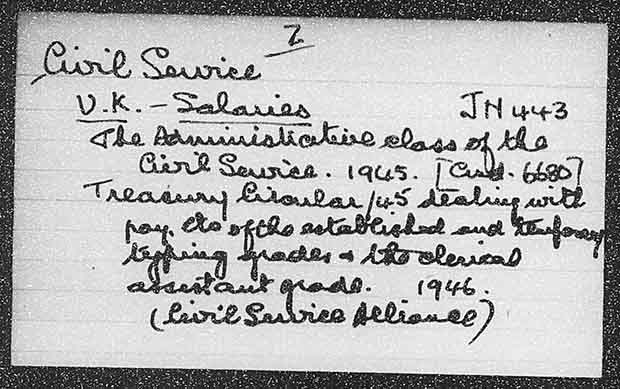 2
Civil Service
U.K. - Salaries JN 443
The Administrative class of the
Civil Service. 1945. [Cmd. 6680]
Treasury Circular /45 dealing with
pay, etc of the established and temporary
typing grades & the clerical
assistant grade. 1946.
(Civil Service Alliance)